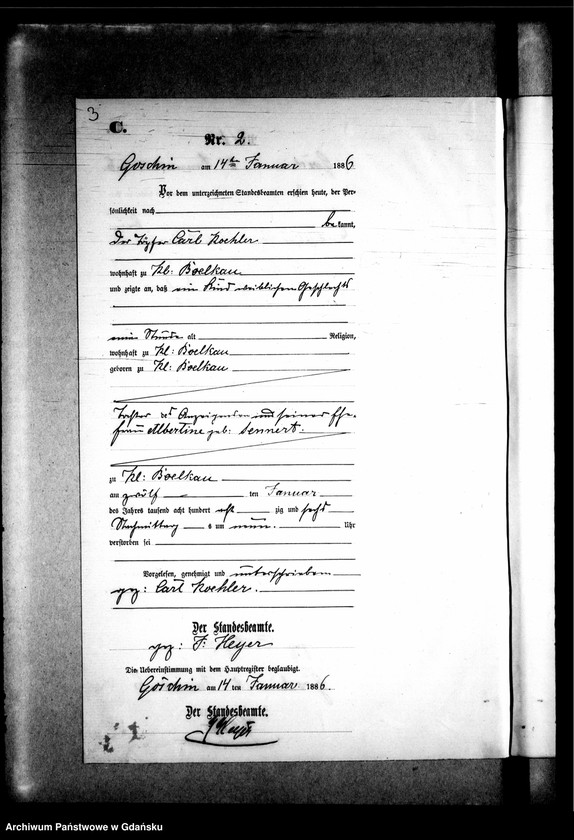 3
C.
Nr. 2.
Goschin am 14ten Januar 1886
Vor dem unterzeichneten Standesbeamten erschien heute, der Per-
sönlichkeit nach
bekannt,
der Töpfer Carl Koehler
wohnhaft zu Kl: Boelkau
und zeigte an, daß ein Kind weiblichen Geschlechts
eine Stunde alt Religion,
wohnhaft zu Kl: Boelkau
geboren zu Kl: Boelkau
Tochter des Anzeigenden und seiner Ehe-
frau Albertine geb: Sennert.
zu Kl: Boelkau
am zwölf ten Januar
des Jahres tausend acht hundert acht zig und sechs
Nachmittag s um neun. Uhr
verstorben sei
Vorgelesen, genehmigt und unterschrieben
gez: Carl Koehler.
Der Standesbeamte.
gez: F. Heyer
Die Uebereinstimmung mit dem Hauptregister beglaubigt.
Goschin am 14 ten Januar 1886.
Der Standesbeamte.
Heyer
Archiwum Państwowe w Gdańsku